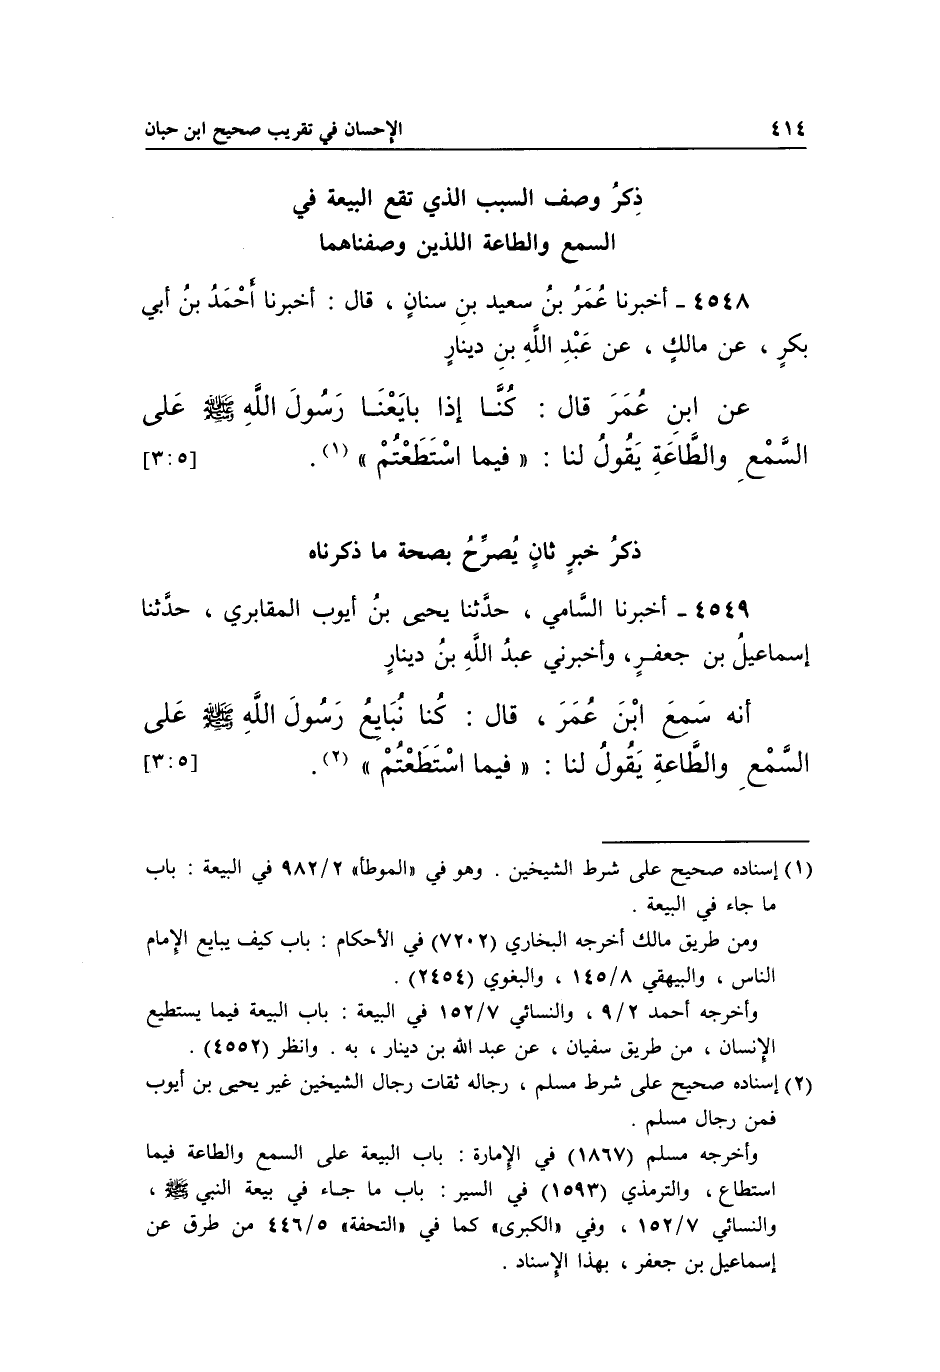 ٤١٤ الإحسان في تقريب صحيح ابن حبان
ذِكرُ وصف السبب الذي تقع البيعة في
السمع والطاعة اللذين وصفناهما
٤٥٤٨ ـ أخبرنا عُمَرُ بنُ سعيد بنِ سنانٍ ، قال : أخبرنا أَحْمَدُ بنُ أبي
بكرٍ ، عن مالكٍ ، عن عَبْدِ اللَّهِ بنِ دينارٍ
عن ابنِ عُمَرَ قال : كُنَّا إذا بايَعْنَا رَسُولَ اللَّهِ ﷺ عَلى
السَّمْعِ والطَّاعَةِ يَقُولُ لنا : « فيما اسْتَطَعْتُمْ » (١). [٣:٥]
ذكرُ خبرٍ ثانٍ يُصرِّحُ بصحة ما ذكرناه
٤٥٤٩ ـ أخبرنا السَّامي ، حدَّثنا يحيى بنُ أيوب المقابري ، حدَّثنا
إسماعيلُ بن جعفرٍ، وأخبرني عبدُ اللَّهِ بنُ دينارٍ
أنه سَمِعَ ابْنَ عُمَرَ ، قال : كُنا نُبَايِعُ رَسُولَ اللَّهِ ﷺ عَلى
السَّمْعِ والطَّاعةِ يَقُولُ لنا : « فيما اسْتَطَعْتُمْ » (٢). [٣:٥]
(١) إسناده صحيح على شرط الشيخين . وهو في «الموطأ» ٩٨٢/٢ في البيعة : باب
ما جاء في البيعة .
ومن طريق مالك أخرجه البخاري (٧٢٠٢) في الأحكام : باب كيف يبايع الإمام
الناس ، والبيهقي ١٤٥/٨ ، والبغوي (٢٤٥٤) .
وأخرجه أحمد ٩/٢ ، والنسائي ١٥٢/٧ في البيعة : باب البيعة فيما يستطيع
الإنسان ، من طريق سفيان ، عن عبد الله بن دينار ، به . وانظر (٤٥٥٢) .
(٢) إسناده صحيح على شرط مسلم ، رجاله ثقات رجال الشيخين غير يحيى بن أيوب
فمن رجال مسلم .
وأخرجه مسلم (١٨٦٧) في الإمارة : باب البيعة على السمع والطاعة فيما
استطاع ، والترمذي (١٥٩٣) في السير : باب ما جاء في بيعة النبي ﷺ ،
والنسائي ١٥٢/٧ ، وفي «الكبرى» كما في «التحفة» ٤٤٦/٥ من طرق عن
إسماعيل بن جعفر ، بهذا الإسناد .